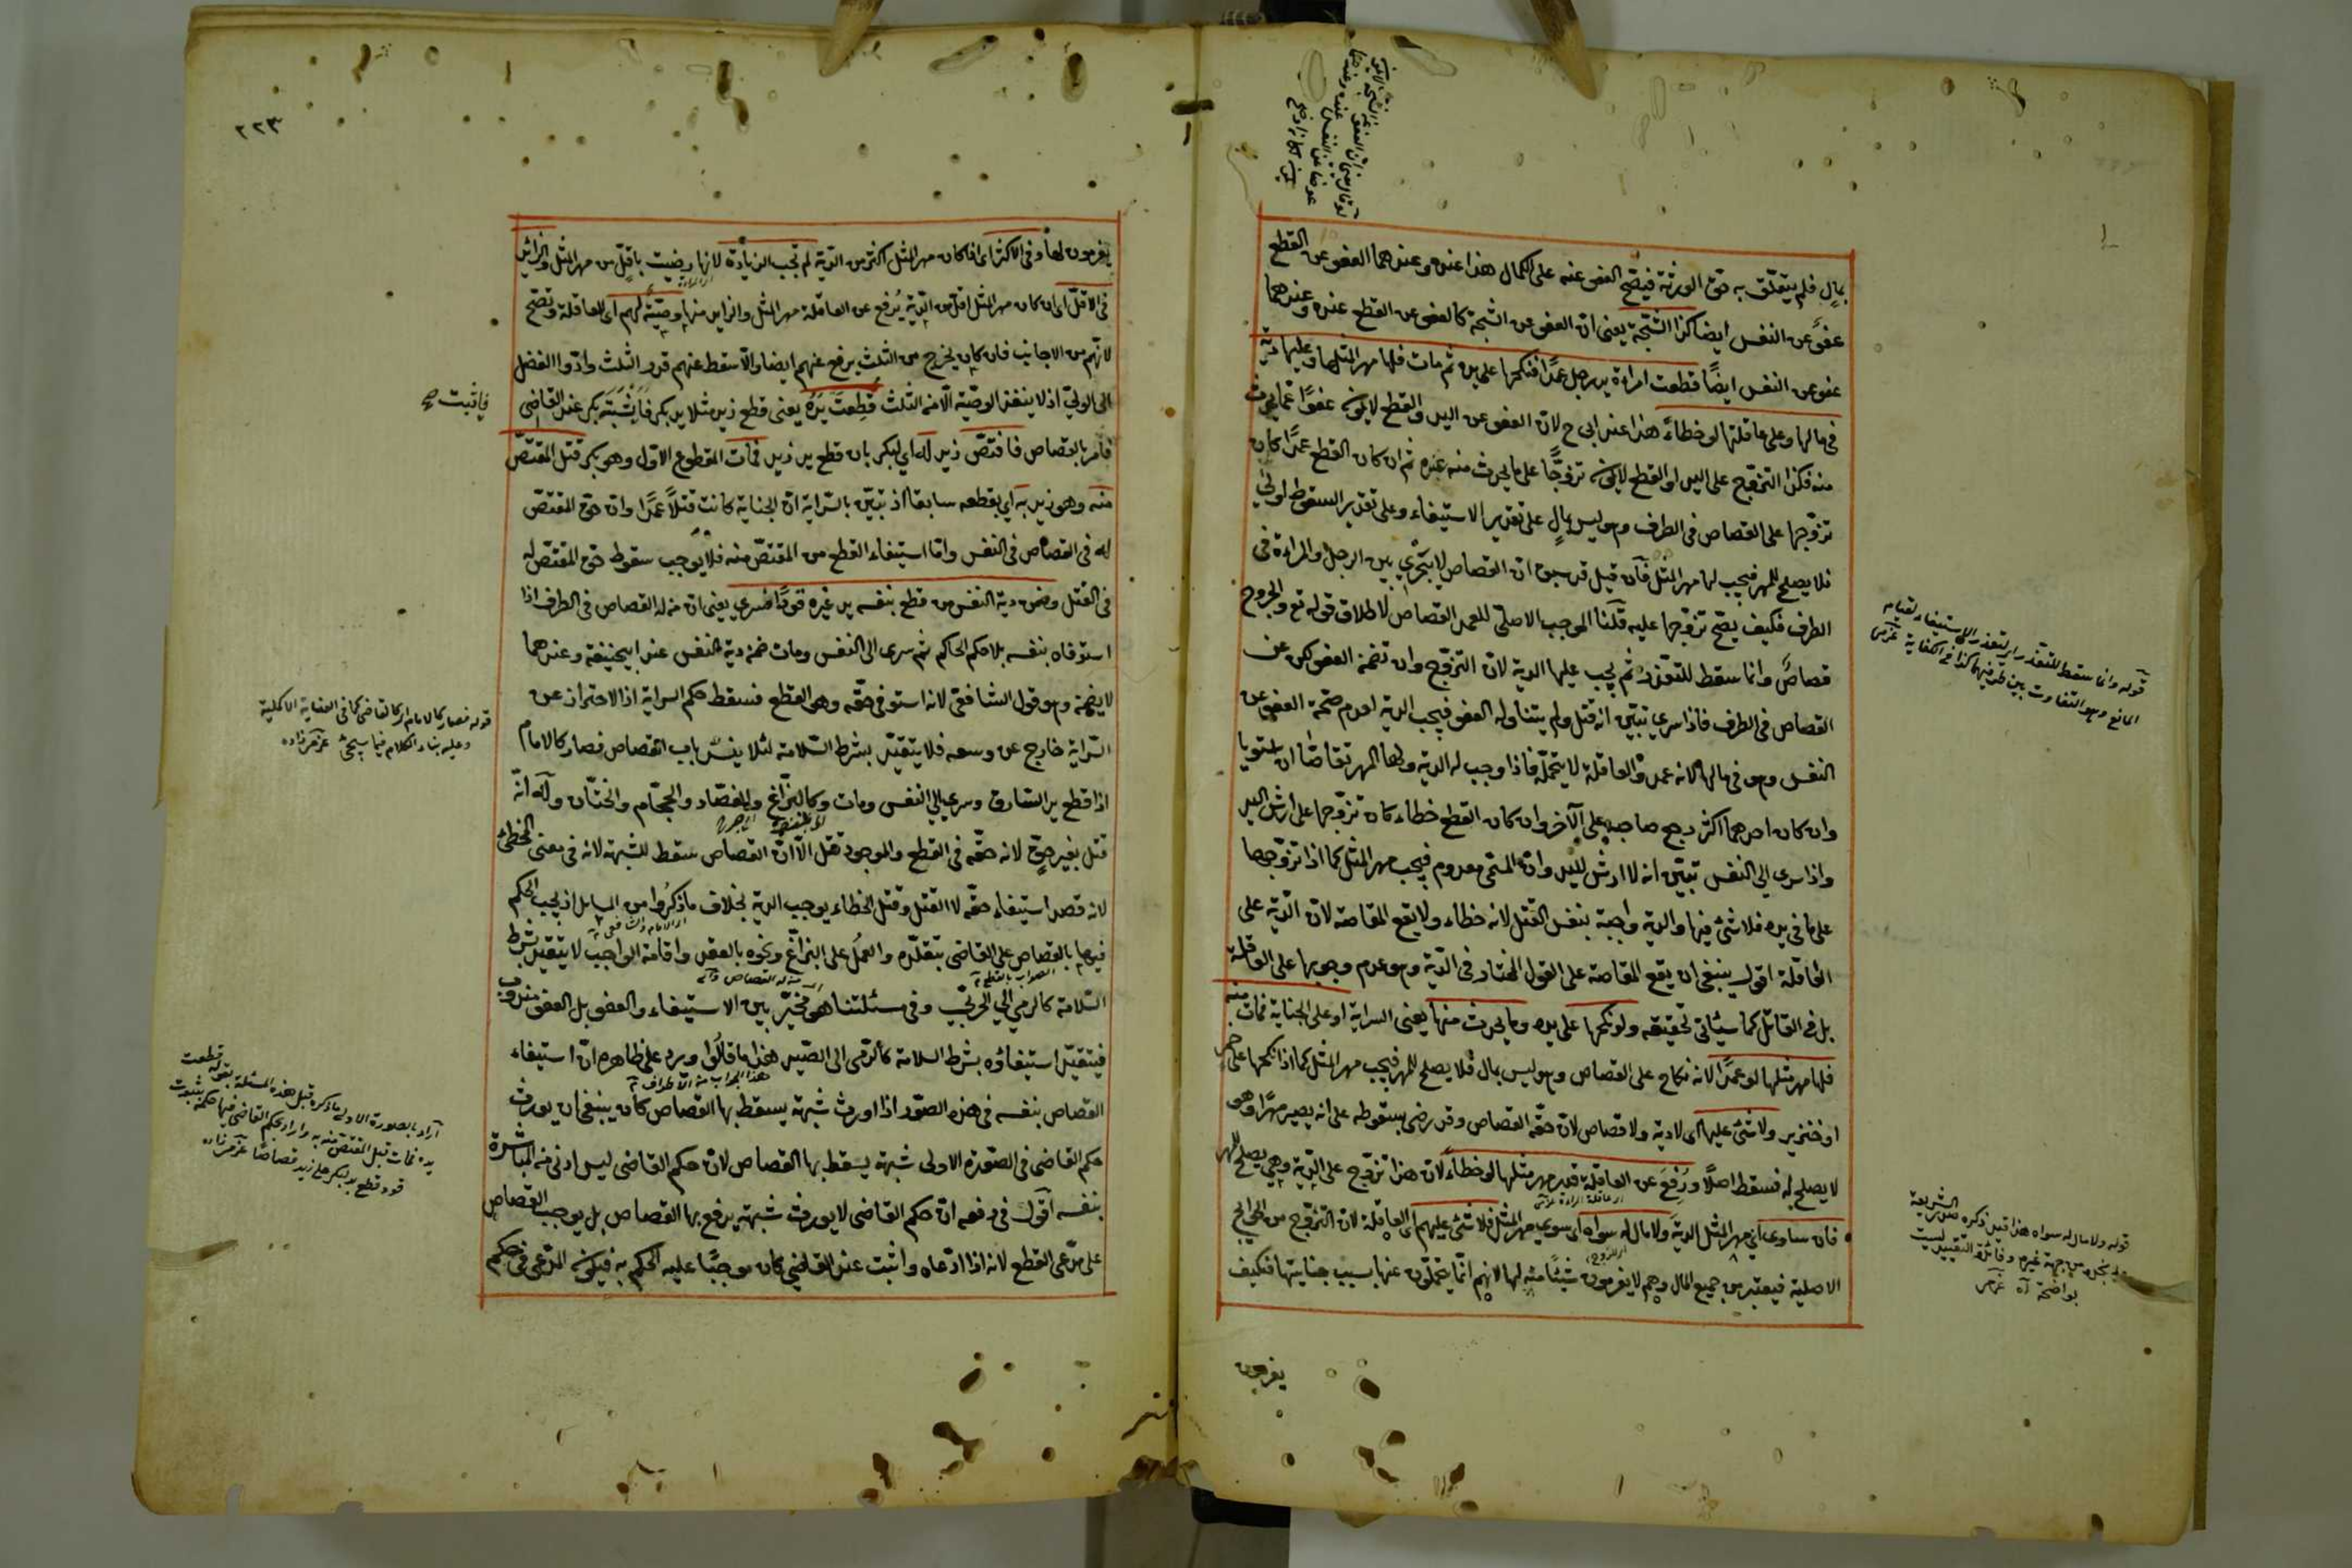 بمال فلم يتعلق به حق الورثة فيصح العفو عنه على الكمال هذا عنده وعندهما العفو عن القطع
عفو عن النفس ايضا كذا الشجة يعنى ان العفو عن الشجة كالعفو عن القطع عنده وعندهما
عفو عن النفس ايضا قطعت امراءة يد رجل عمدا فنكحها على يده ثم مات فلها مهر المثل وعليها دية
فى مالها وعلى عاقلتها لو خطاء هذا عند ابى ح لان العفو عن اليد والقطع لا يكون عفوا عما يحدث
منه فكذا التزوج على اليد او القطع لا يكون تزوجا على ما يحدث منه عنده ثم ان كان القطع عمدا كان
تزوجها على القصاص فى الطرف وهو ليس بمال على تقدير الاستيفاء وعلى تقدير السقوط اولى
فلا يصلح للمهر فيجب لها مهر المثل فان قيل قد سبق ان القصاص لا يجرى بين الرجل والمراءة فى
الطرف فكيف يصح تزوجها عليه قلنا الموجب الاصلى للعمد القصاص لاطلاق قوله تع والجروح
قصاص وانما سقط للتعذر ثم يجب عليها الدية لان التزوج وان تضمن العفو لكن عن
القصاص فى الطرف فاذا سرى تبين انه قتل ولم يتناوله العفو فيجب الدية لعدم صحة العفو عن
النفس وهو فى مالها لانه عمد والعاقلة لا يتحمله فاذا وجب له الدية ولها المهر تقاصا ان استويا
وان كان احدهما اكثر رجع صاحبه على الآخر وان كان القطع خطاء كان تزوجها على ارش اليد
واذا سرى الى النفس تبين انه لا ارش لليد وان المسمى معدوم فيجب مهر المثل كما اذا تزوجها
على ما فى يده فلا شئ فيها والدية واجبة بنفس القتل لانه خطاء ولا يقع المقاصة لان الدية على
العاقلة اقول ينبغى ان يقع المقاصة على القول المختار فى الدية وهو عدم وجوبها على العاقلة
بل فى القاتل كما سيأتى تحقيقه ولو نكحها على يده وما يحدث منها يعنى السراية او على الجناية فمات منه
فلها مهر مثلها لو عمدا لانه نكاح على القصاص وهو ليس بمال فلا يصلح للمهر فيجب مهر المثل كما اذا نكحها على خمر
او خنزير ولا شئ عليها اى لا دية ولا قصاص لان حقه القصاص وقد رضى بسقوطه على انه يصير مهرا وهو
لا يصلح له فسقط اصلا ورفع عن العاقلة قدر مهر مثلها لو خطاء لان هذا تزوج على الدية وهى يصلح للمهر
فان ساوى اى مهر المثل الدية ولا مال له سواه اى سوى مهر المثل فلا شئ عليهم اى العاقلة لان التزوج من الحوايج
الاصلية فيعتبر من جميع المال وهم لا يغرمون شيئا منه لها لانهم انما يتحملون عنها بسبب جنايتها فكيف
يغرمون
قوله وانما سقط للتعذر اى لتعذر الاستيفاء لقيام
المانع وهو التفاوت بين طرفيهما كذا فى الكفاية
قوله ولا مال له سواه هذا قيد ذكره صدر الشريعة
٢٢٣
يغرمون لها وفى الاكثر اى اذا كان مهر المثل اكثر من الدية لم تجب الزيادة لانها رضيت باقل من مهر المثل والزائد
فى الاقل اى ان كان مهر المثل اقل من الدية يرفع عن العاقلة مهر المثل والزايد منها وصية لهم اى للعاقلة وتصح
لانهم من الاجانب فان كان يخرج من الثلث يرفع عنهم ايضا والا سقط عنهم قدر الثلث وادوا الفضل
الى الولى اذ لا ينفذ الوصية الا من الثلث قطعت يده يعنى قطع زيد مثلا يد بكر فاثبته بكر عند القاضى
فامر بالقصاص فاقتص زيد له اى لبكر بان قطع يد زيد فمات المقطوع الاول وهو بكر قتل المقتص
منه وهو زيد به اى بقطعه سابقا اذ تبين بالسراية ان الجناية كانت قتلا عمدا وان حق المقتص
له فى القصاص فى النفس واما استيفاء القطع من المقتص منه فلا يوجب سقوط حق المقتص له
فى القتل وضمن دية النفس من قطع بنفسه يد غيره قودا فسرى يعنى ان من له القصاص فى الطرف اذا
استوفاه بنفسه بلا حكم الحاكم ثم سرى الى النفس ومات ضمن دية النفس عند ابيحنيفة وعندهما
لا يضمن وهو قول الشافعى لانه استوفى حقه وهو القطع فسقط حكم السراية اذ الاحتراز عن
السراية خارج عن وسعه فلا يتقيد بشرط السلامة لئلا ينسد باب القصاص فصار كالامام
اذا قطع يد السارق وسرى الى النفس ومات وكالبزاغ والفصاد والحجام والختان وله انه
قتل بغير حق لانه حقه فى القطع والموجود قتل الا ان القصاص سقط للشبهة لانه فى معنى الخطئ
لانه قصد استيفاء حقه لا القتل وقتل الخطاء يوجب الدية بخلاف ما ذكروا من المسايل اذ يجب الحكم
فيها بالقصاص على القاضى بتقلده والعمل على البزاغ ونحوه بالعقد واقامة الواجب لا يتقيد بشرط
السلامة كالرمى الى الحربى وفى مسئلتنا هو مخير بين الاستيفاء والعفو بل العفو مندوب
فيتقيد استيفاؤه بشرط السلامة كالرمى الى الصيد هذا ما قالوا ويرد على ظاهره ان استيفاء
القصاص بنفسه فى هذه الصور اذا اورث شبهة يسقط بها القصاص كان ينبغى ان يورث
حكم القاضى فى الصورة الاولى شبهة يسقط بها القصاص لان حكم القاضى ليس ادنى من المباشرة
بنفسه اقول فى دفعه ان حكم القاضى لا يورث شبهة يدفع بها القصاص بل يوجب القصاص
على مدعى القطع لانه اذا ادعاه واثبت عند القاضى كان موجبا عليه الحكم به فيكون المدعى فى حكم
فاثبت صح
قوله فصار كالامام اى كالقاضى كما فى العناية الاكملية
وعليه بناء الكلام فيما سيجئ عزمى زاده
اراد بالصورة الاولى ما ذكره قبل هذه المسئلة بقوله قطعت
يده فمات قبل المقتص منه به واراد بحكم القاضى فيها حكمه بثبوت
قود قطع يد بكر على زيد قصاصا عزمى زاده